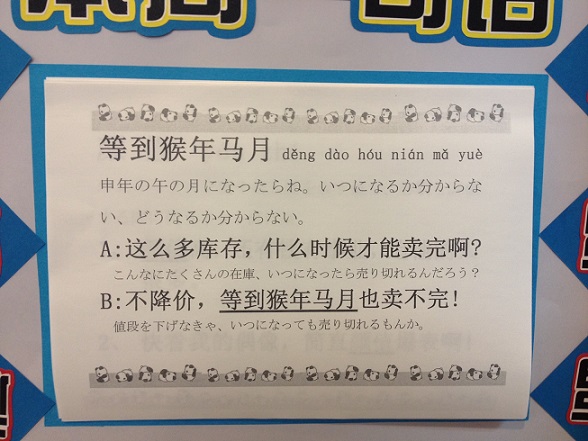 本周一句话
等到猴年马月 děng dào hóu nián mǎ yuè
申年の午の月になったらね。いつになるか分からな
い、どうなるか分からない。
A:这么多库存，什么时候才能卖完啊?
こんなにたくさんの在庫、いつになったら売り切れるんだろう？
B:不降价，等到猴年马月也卖不完!
値段を下げなきゃ、いつになっても売り切れるもんか。